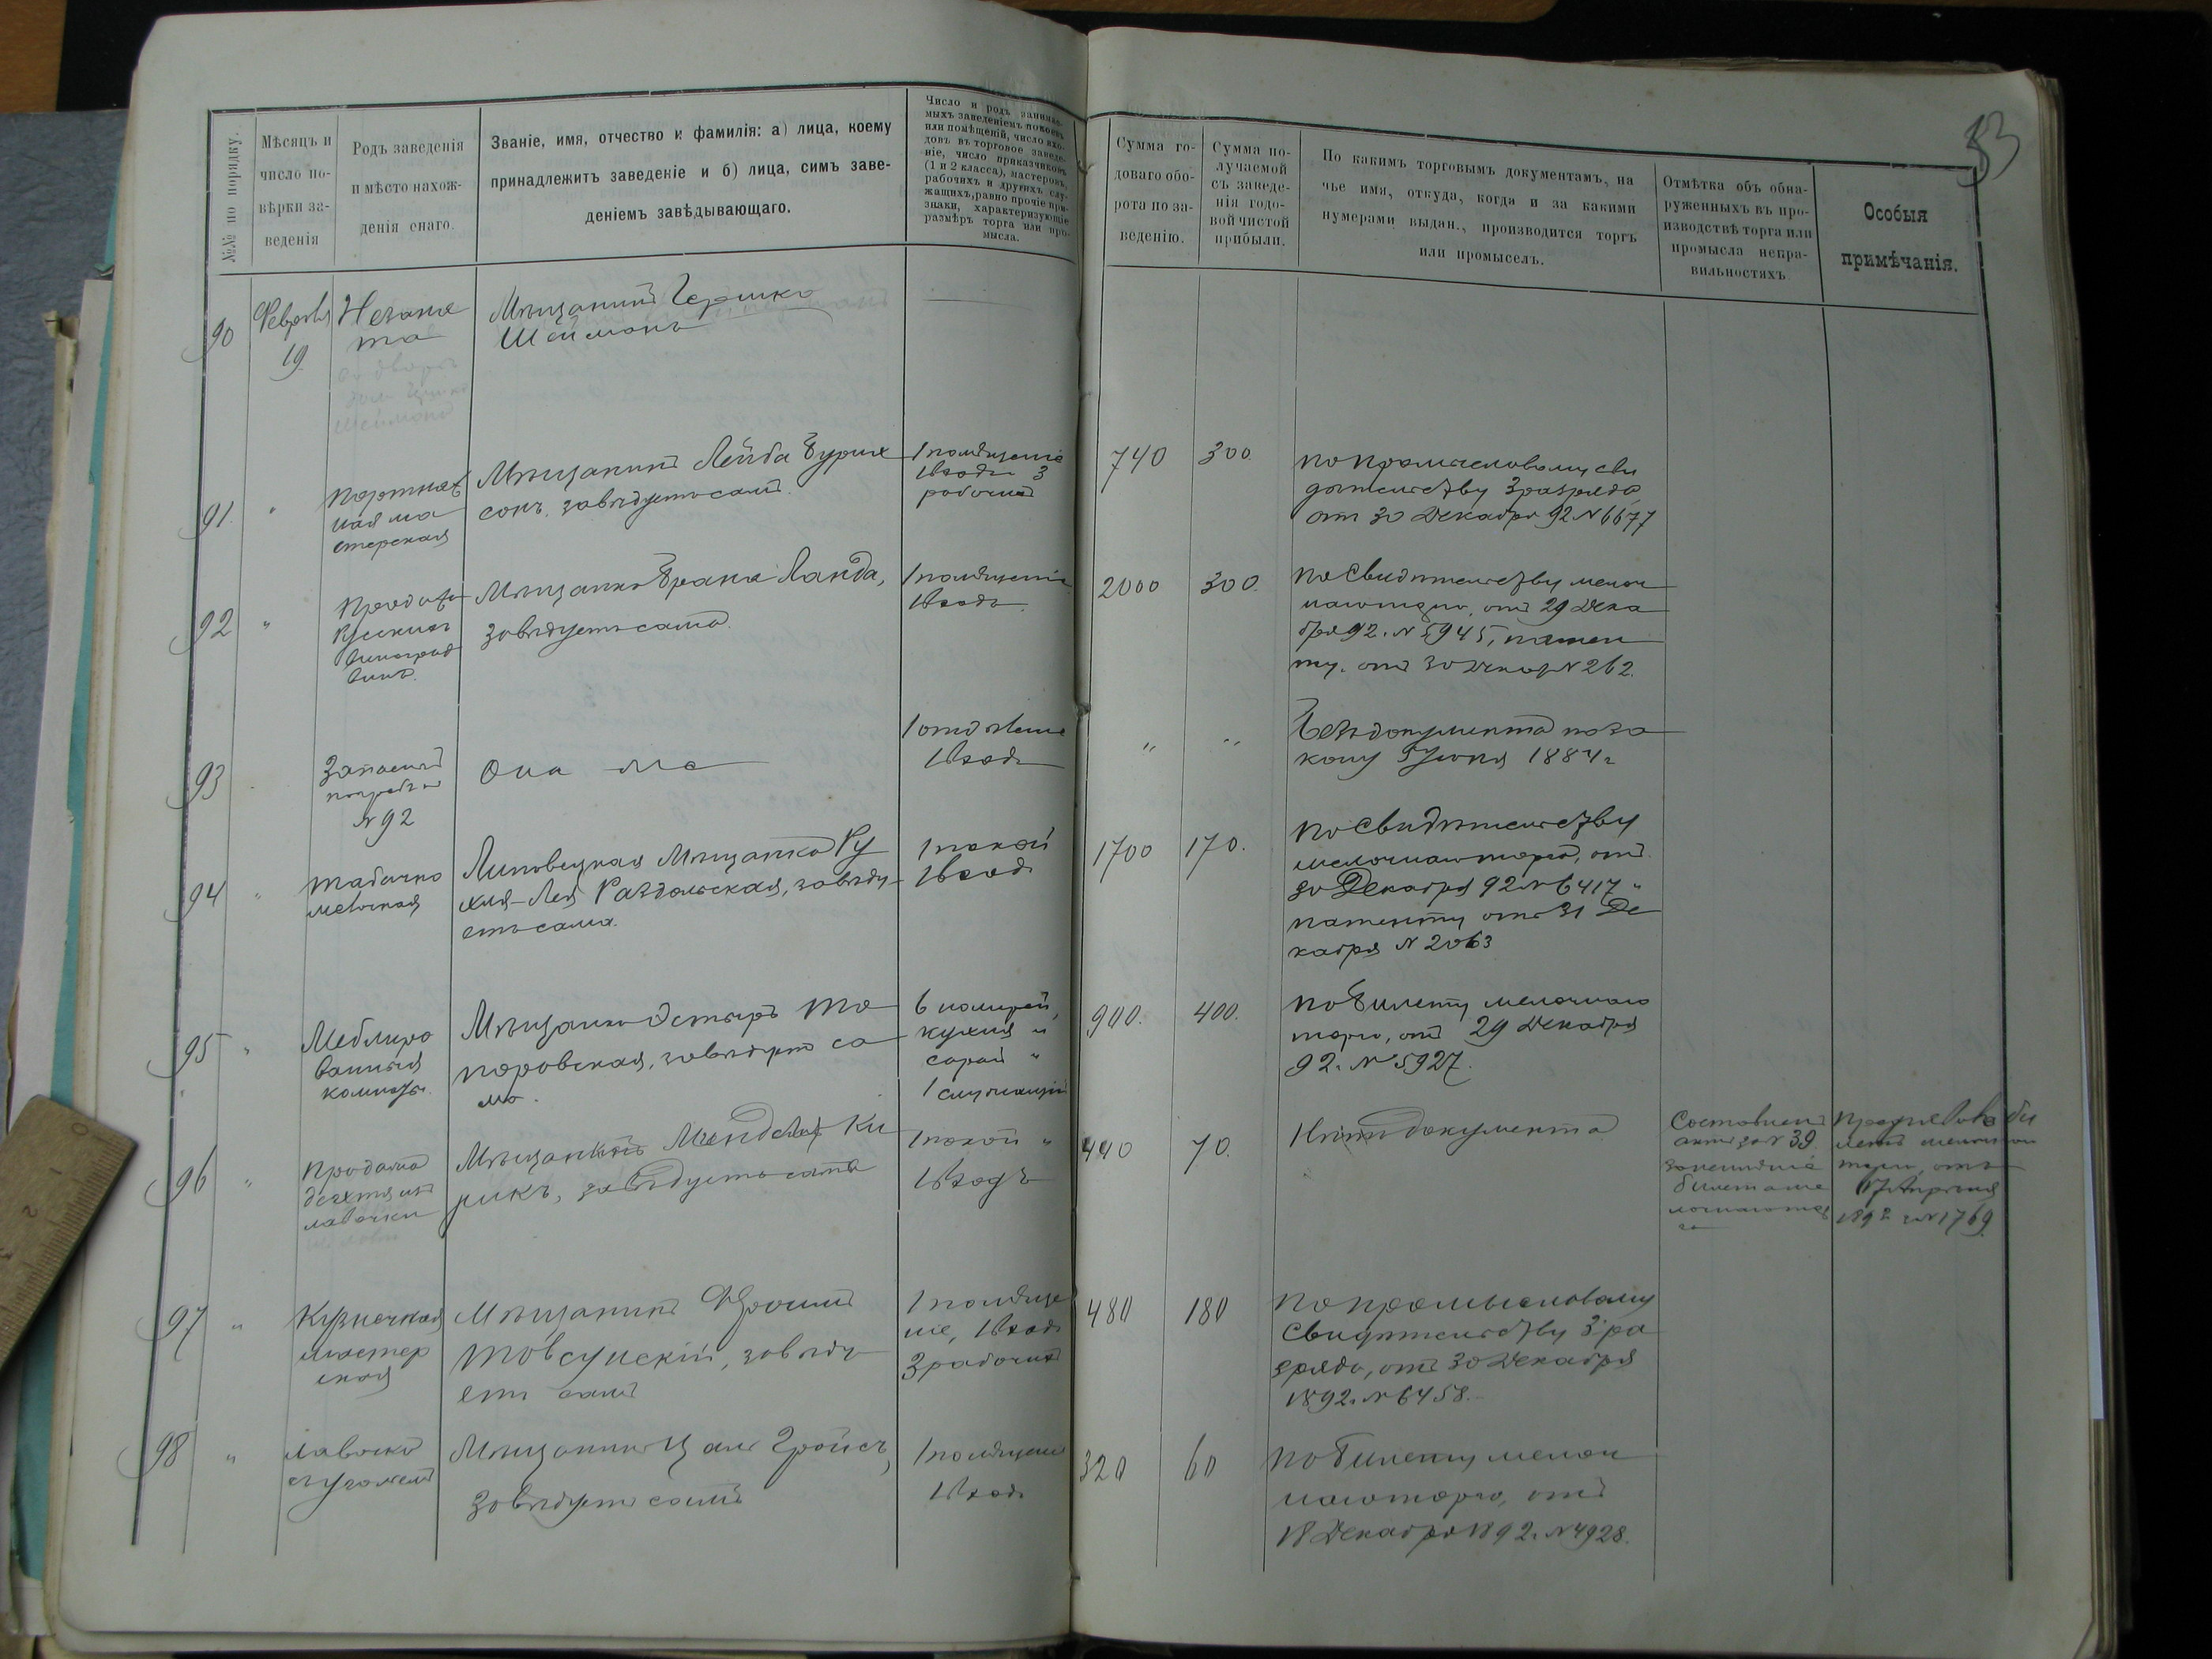 53
№№ по порядку.
Мѣсяцъ и
число по-
вѣрки за-
веденія
Родъ заведенія
и мѣсто нахож-
денія онаго.
Званіе, имя, отчество и фамилія: а) лица, коему
принадлежитъ заведеніе и б) лица, симъ заве-
деніемъ завѣдывающаго.
Число и родъ занимае-
мыхъ заведеніемъ покоевъ
или помѣщеній, число вхо-
довъ въ торговое заведе-
ніе, число приказчиковъ
(1 и 2 класса), мастеровъ,
рабочихъ и другихъ слу-
жащихъ, равно прочіе при-
знаки, характеризующіе
размѣръ торга или про-
мысла.
Сумма го-
доваго обо-
рота по за-
веденію.
Сумма по-
лучаемой
съ заведе-
нія годо-
вой чистой
прибыли.
По какимъ торговымъ документамъ, на
чье имя, откуда, когда и за какими
нумерами выдан., производится торгъ
или промыселъ.
Отмѣтка объ обна-
руженныхъ въ про-
изводствѣ торга или
промысла непра-
вильностяхъ
Особыя
примѣчанія.
90
19
Незаня
та
Мѣщанинъ Гершко
Шейманъ
91
"
ная ма
стерская
Мѣщанинъ Лейба Бурих
сонъ, завѣдуетъ самъ.
1 помѣщеніе
1 входъ 3
рабочихъ
740
300.
По промысловому сви
дѣтельству 3 разряда
отъ 30 Декабря 92 N 6677
92
"
Продажа
Русскихъ
виноград
винъ.
Мѣщанка Брана Ланда,
завѣдуетъ сама.
1 помѣщеніе
1 входъ
2000
300.
По свидѣтельству мелоч
наго торга, отъ 29 Дека
бря 92 г. N 5945, патен
ту отъ 30 Декаб N 262.
93
Запасный
погребъ
N 92
Она же
1 отдѣленіе
1 входъ
"
"
Безъ документа по за
кону 5 Іюня 1884 г
94
"
Табачно
мелочная
Липовецкая Мѣщанка Ру
хля-Лея Раздольская, завѣду-
етъ сама.
1 покой
1 входъ
1700
170.
По свидѣтельству
мелочнаго торга, отъ
30 Декабря 92 N 6417 и
патенту отъ 31 Де
кабря N 2063
95
"
Меблиро
ванныя
комнаты.
Мѣщанка Эстеръ То
поровская, завѣдуетъ са
ма.
6 номеровъ,
кухня и
сарай "
1 служащій
900.
400.
По билету мелочнаго
торга, отъ 29 Декабря
92 г. N 5927.
96
"
Продажа
дегтя изъ
лавочки
Мѣщанинъ Мендель Ки
рикъ, завѣдуетъ самъ
1 покой "
1 входъ
440
70.
Нѣтъ документа
Составленъ
актъ за N 39
1892 за N 1769.
97
"
Кузнечная
мастер
ская
Мѣщанинъ Фроимъ
Товсунскій, завѣду
етъ самъ
1 помѣще
ніе, 1 входъ
3 рабочихъ
480
180
По промысловому
свидѣтельству 3 ра
зряда, отъ 30 Декабря
1892 г. N 6458.
98
"
Лавочка
съ углемъ
Мѣщанинъ Цаль Гройсъ,
завѣдуетъ самъ
1 помѣщеніе
1 входъ
320
60
По билету мелоч
наго торга, отъ
18 Декабря 1892 г. N 4928.